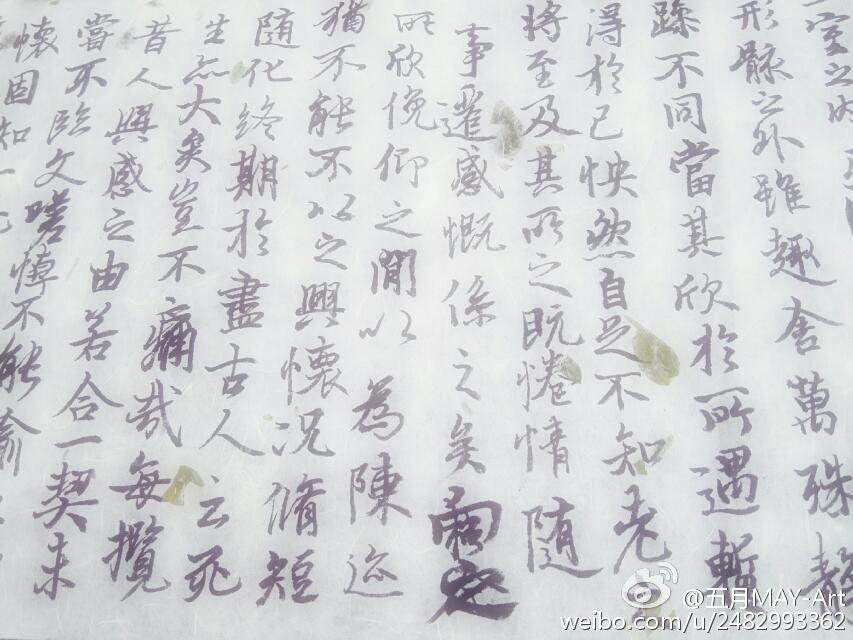 室之内
形骸之外雖趣舍萬殊静
躁不同當其欣於所遇暫
得於己怏然自足不知老
將至及其所之既惓情隨
事遷感慨係之矣向之
所欣俛仰之閒以為陳迹
猶不能不以之興懷況脩短
隨化終期於盡古人云死
生亦大矣豈不痛哉每攬
昔人興感之由若合一契未
嘗不臨文嗟悼不能喻
懷固知一
@五月MAY-Art
weibo.com/u/2482993362